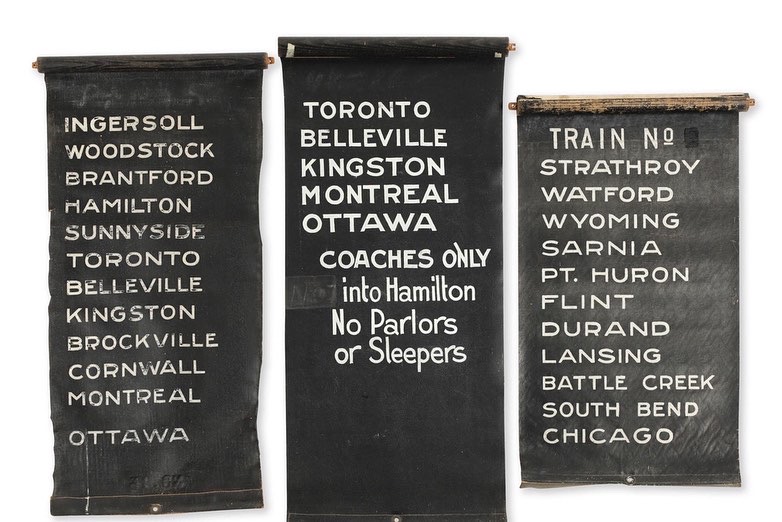 INGERSOLL
WOODSTOCK
BRANTFORD
HAMILTON
SUNNYSIDE
TORONTO
BELLEVILLE
KINGSTON
BROCKVILLE
CORNWALL
MONTREAL
OTTAWA
TORONTO
BELLEVILLE
KINGSTON
MONTREAL
OTTAWA
COACHES ONLY
into Hamilton
No Parlors
or Sleepers
TRAIN Nº
STRATHROY
WATFORD
WYOMING
SARNIA
PT. HURON
FLINT
DURAND
LANSING
BATTLE CREEK
SOUTH BEND
CHICAGO